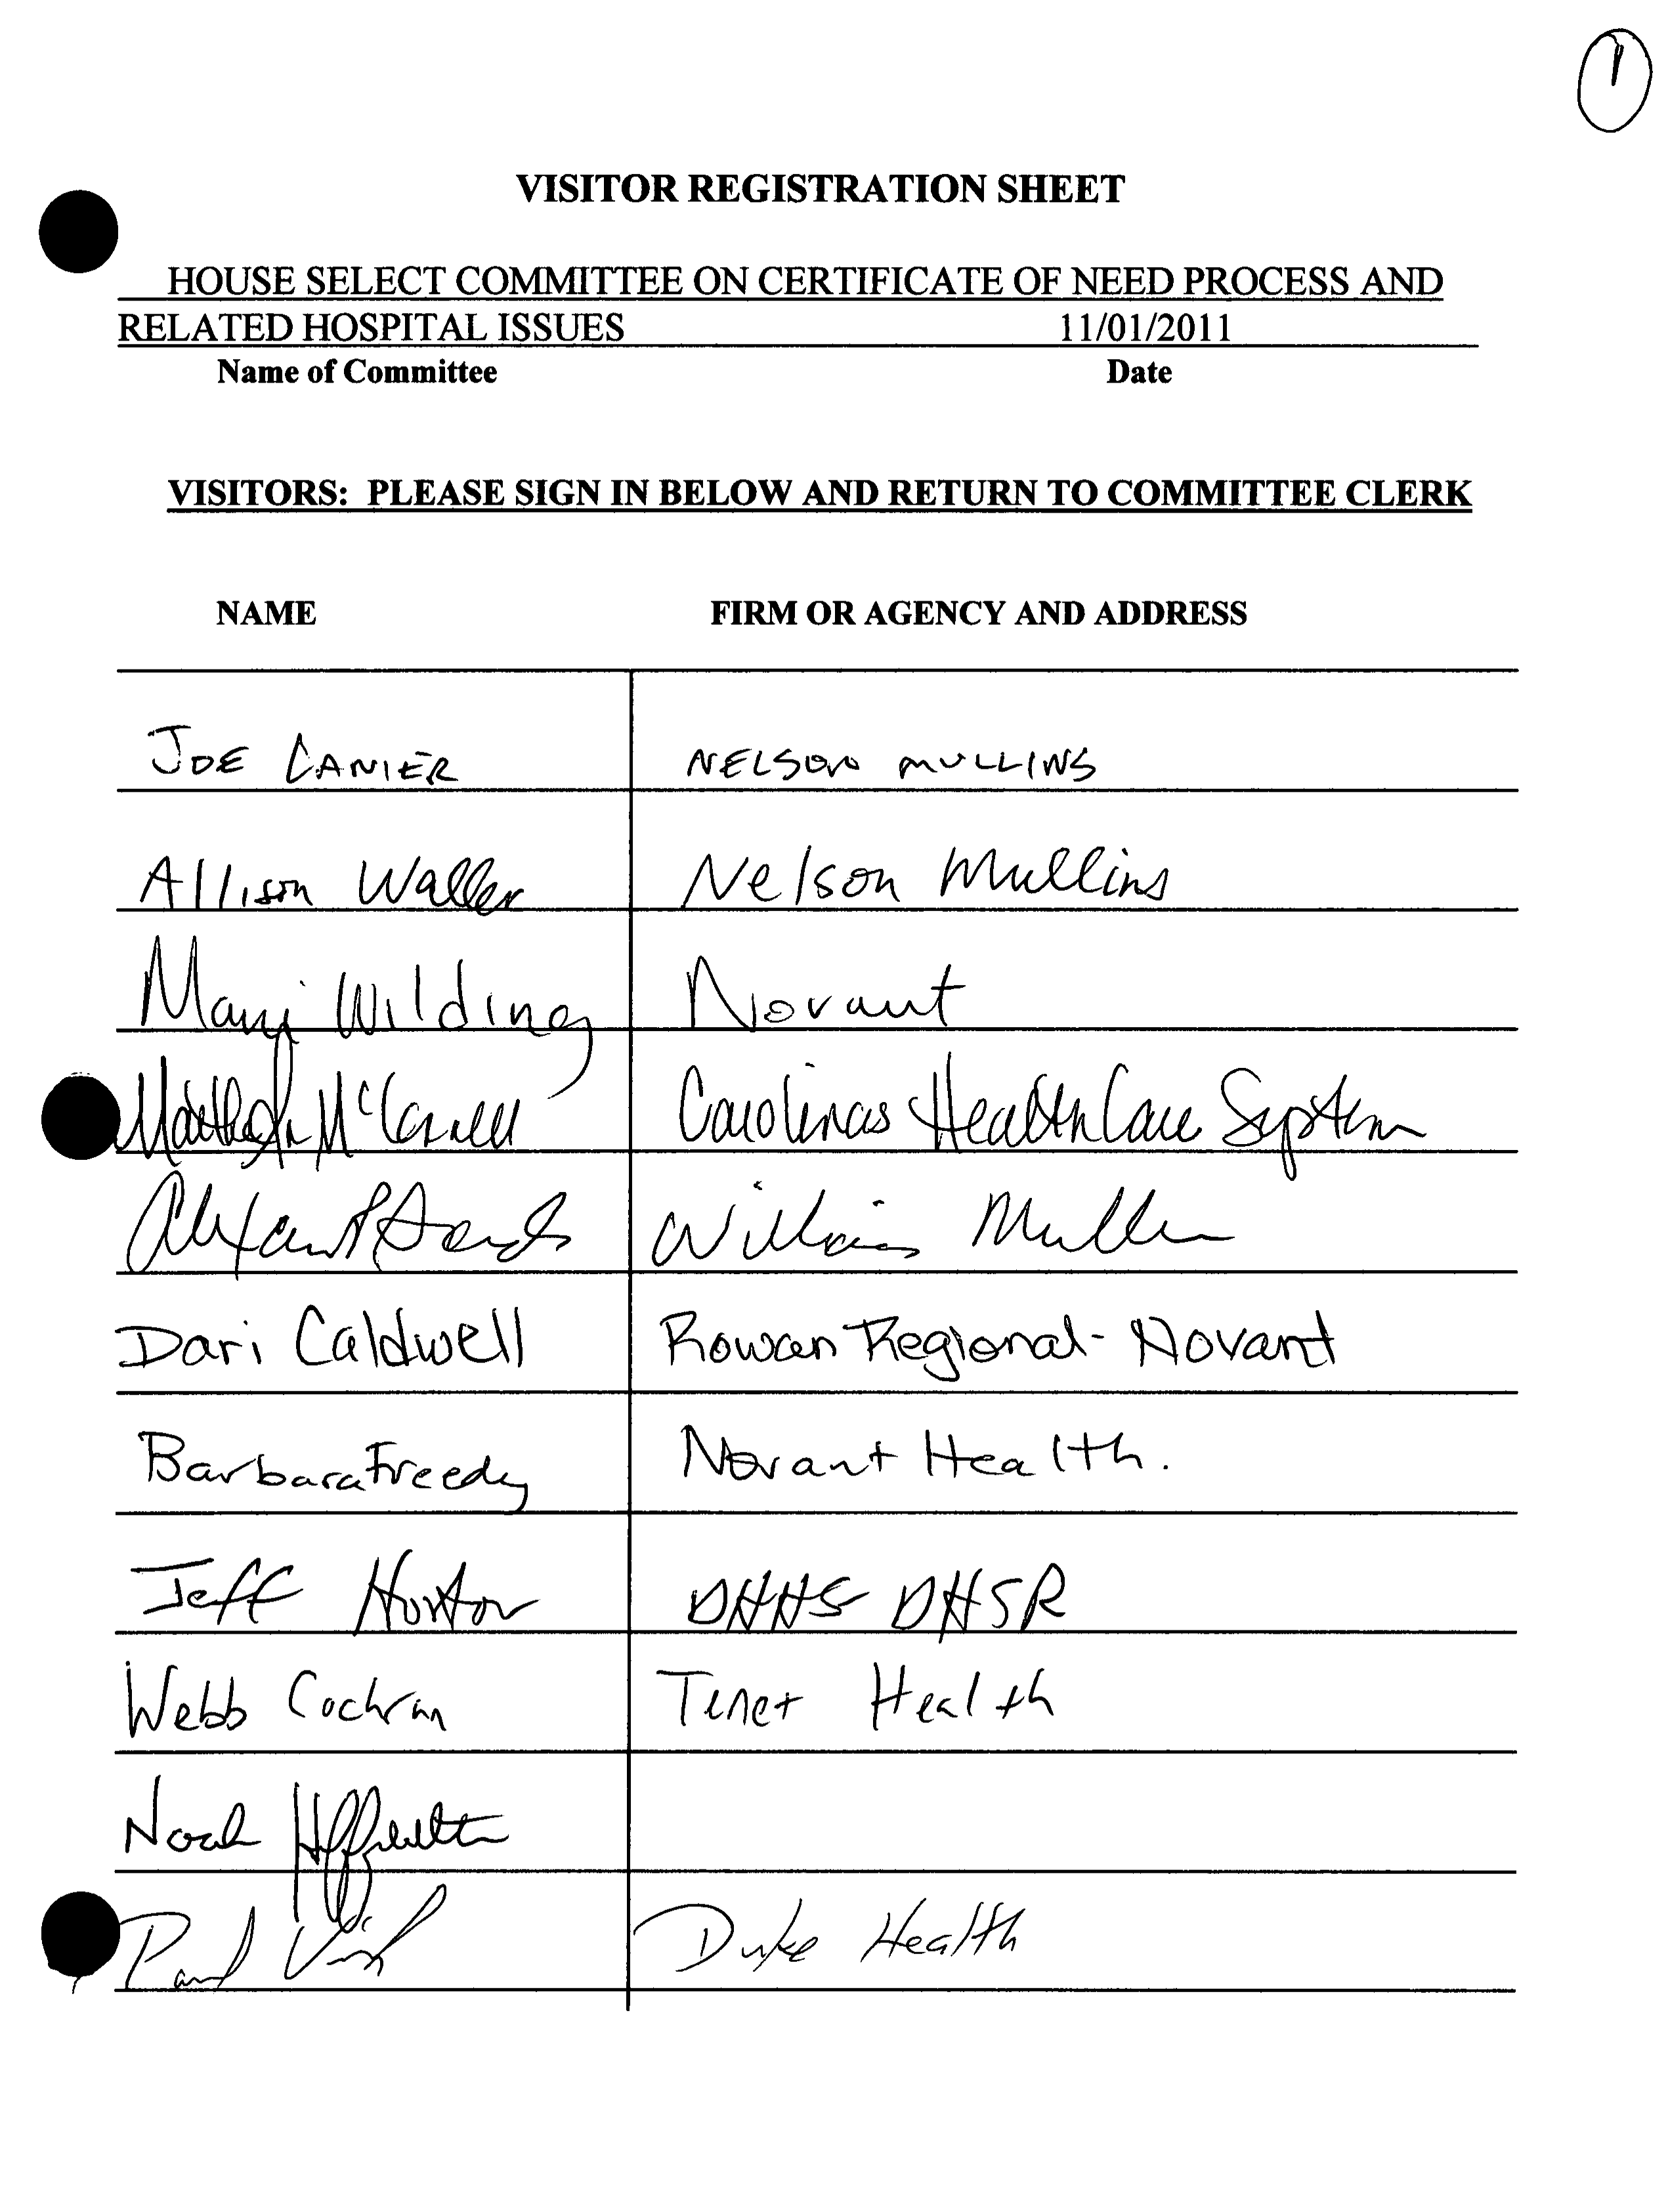 1
VISITOR REGISTRATION SHEET
HOUSE SELECT COMMITTEE ON CERTIFICATE OF NEED PROCESS AND
RELATED HOSPITAL ISSUES 11/01/2011
Name of Committee Date
VISITORS: PLEASE SIGN IN BELOW AND RETURN TO COMMITTEE CLERK
NAME FIRM OR AGENCY AND ADDRESS
JOE LANIER NELSON MULLINS
Allison Waller Nelson Mullins
Wilding Novant
Carolinas HealthCare System
Williams Mullen
Dari Caldwell Rowan Regional - Novant
Barbara Freedy Novant Health.
Jeff Horton DHHS DHSR
Webb Cochran Tenet Health
Noah
Paul Duke Health